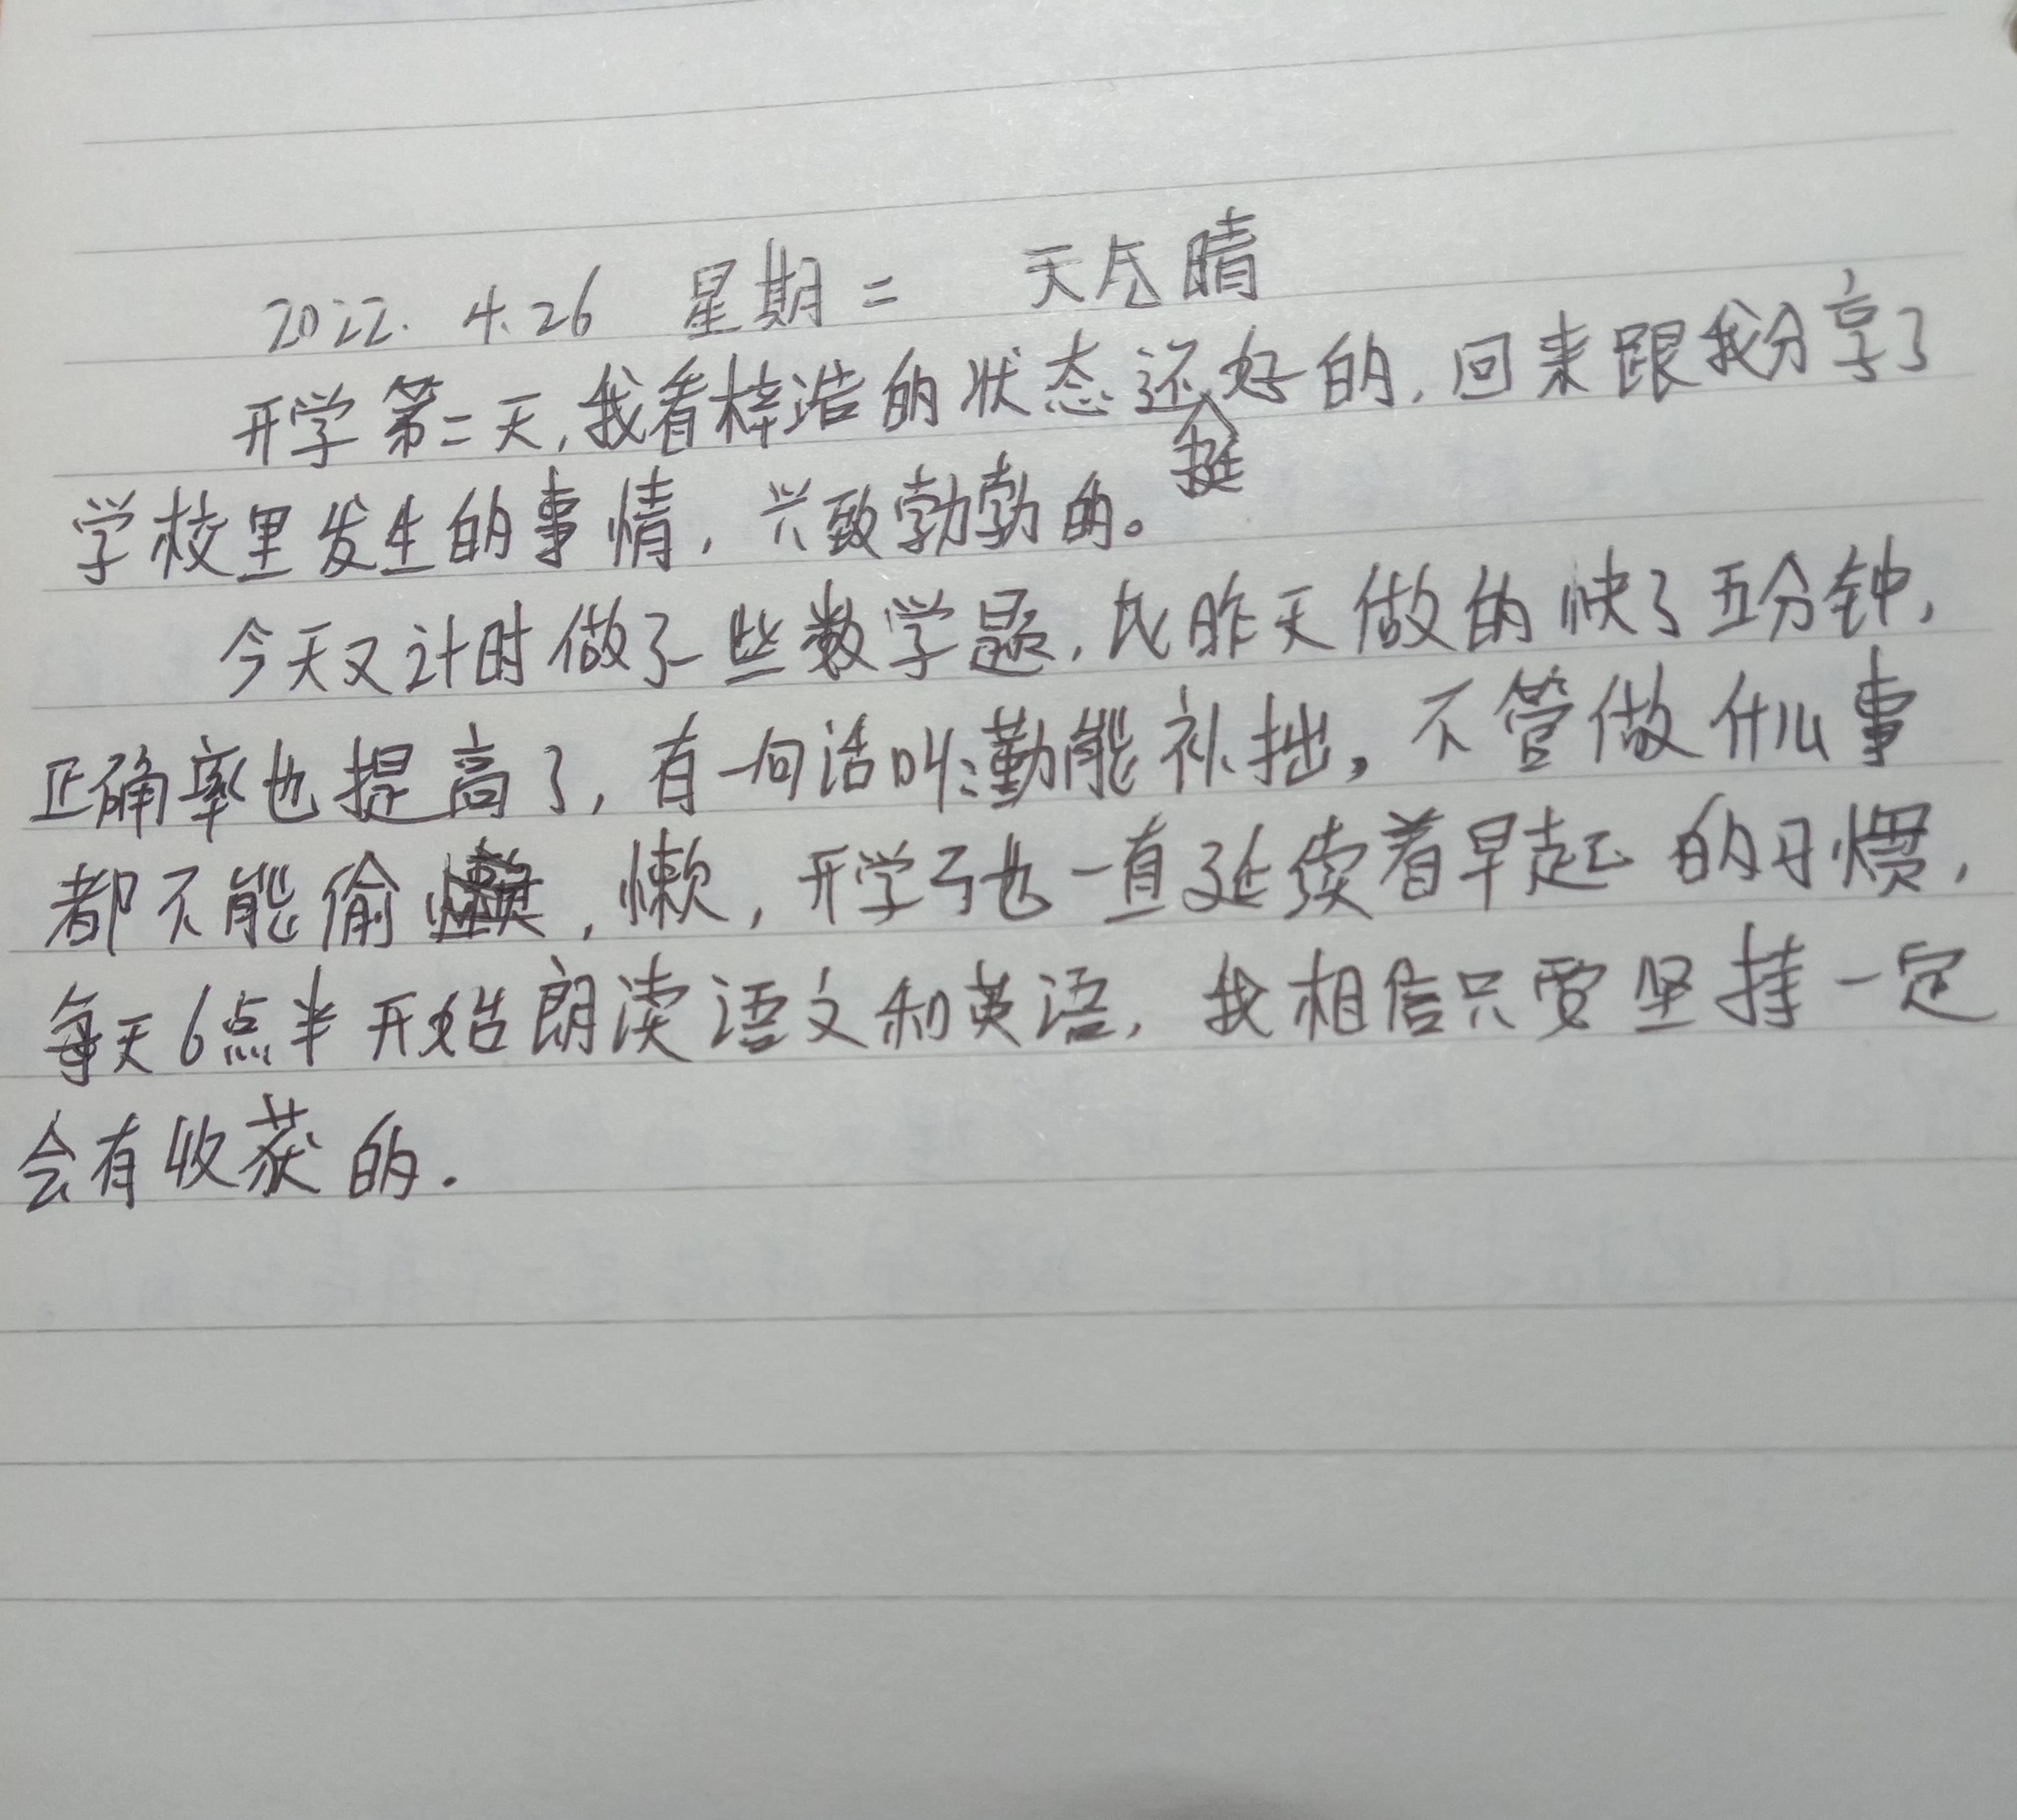 2022. 4.26 星期二 天气晴
开学第二天,我看梓浩的状态还挺好的,回来跟我分享了
学校里发生的事情,兴致勃勃的。
今天又计时做了一些数学题,比昨天做的快了五分钟,
正确率也提高了,有一句话叫:勤能补拙,不管做什么事
都不能偷,懒,开学了也一直延续着早起的习惯,
每天6点半开始朗读语文和英语,我相信只要坚持一定
会有收获的.